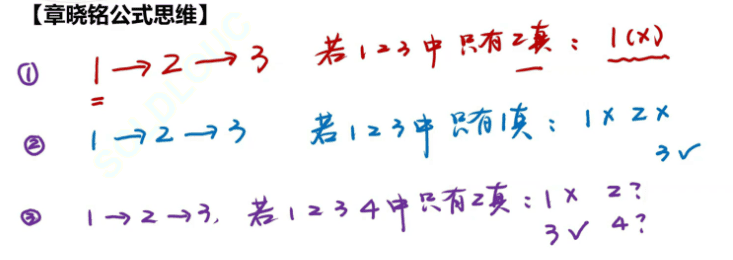 【章晓铭公式思维】
① 1→2→3 若123中只有2真：1(×)
② 1→2→3 若123中只有1真：1× 2×
3✓
③ 1→2→3, 若1234中只有2真：1× 2?
3✓ 4?